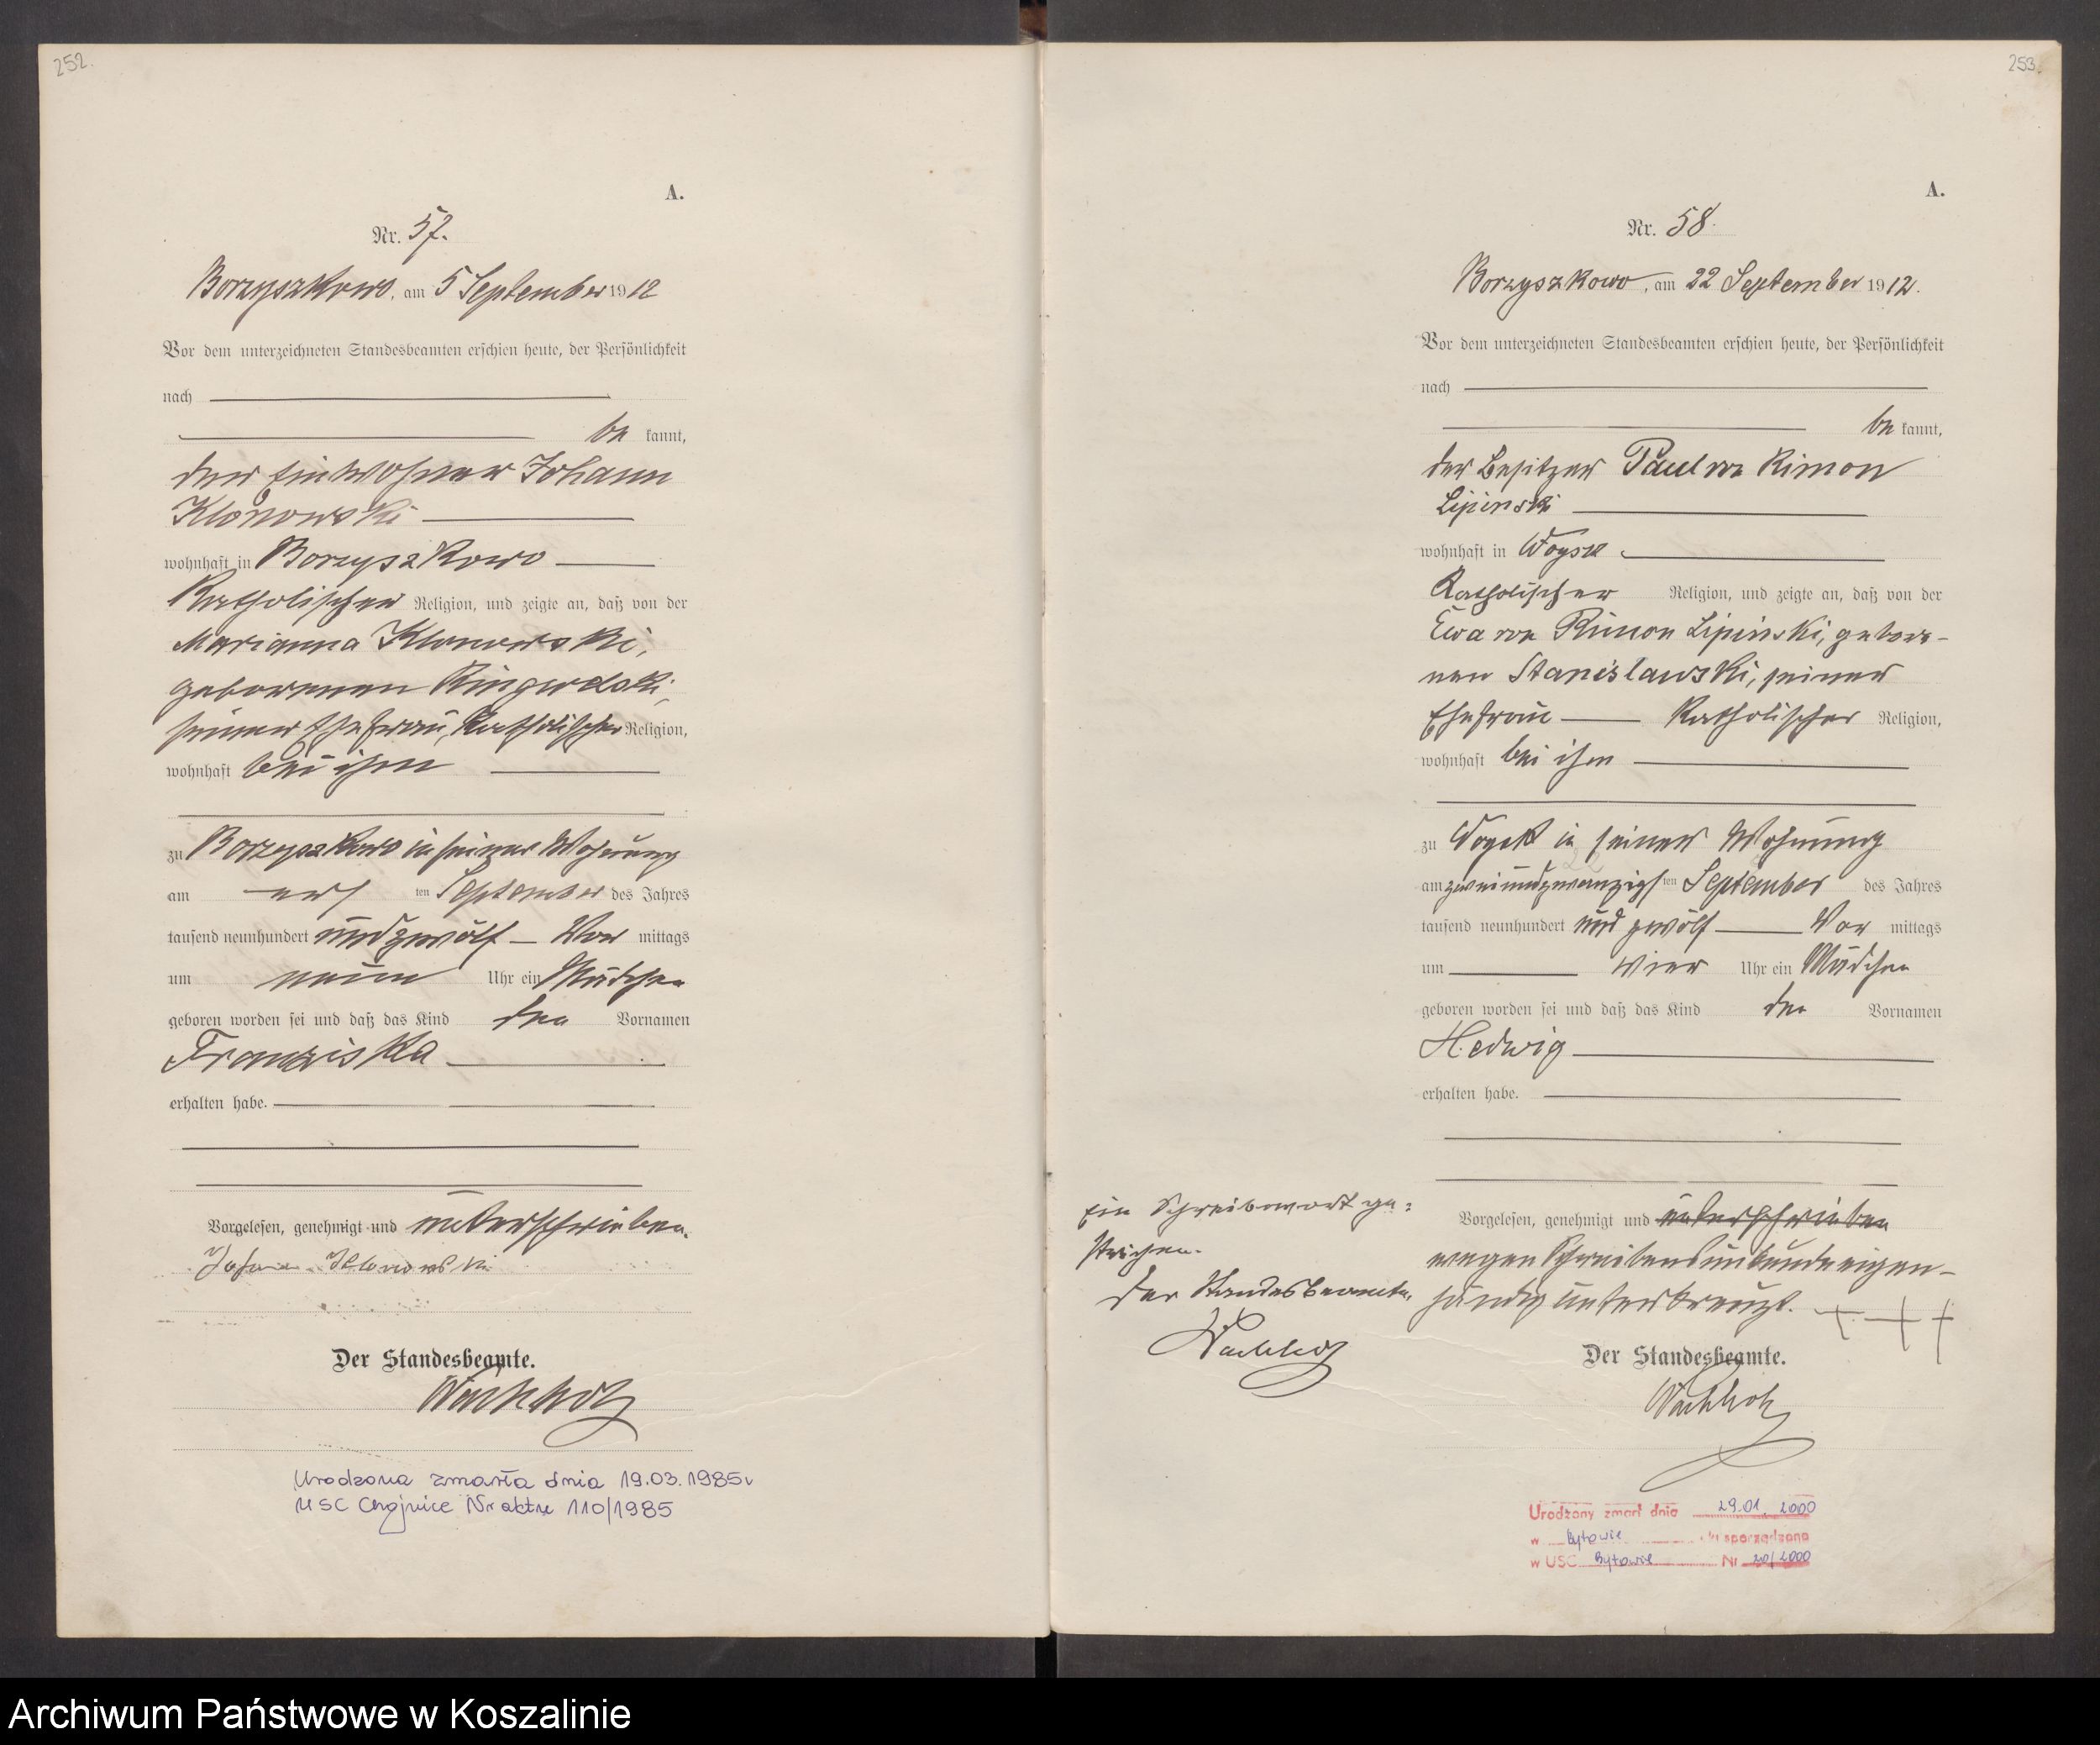 252.
A.
Nr. 57.
Borzyszkowo, am 5 September 1912
Vor dem unterzeichneten Standesbeamten erschien heute, der Persönlichkeit
nach
be kannt,
der Einwohner Johann
Klonowski
wohnhaft in Borzyszkowo
Katholischer Religion, und zeigte an, daß von der
Marianna Klonowski,
geborenen
seiner Ehefrau, Katholischer Religion,
wohnhaft bei ihm
zu Borzyszkowo in seiner Wohnung
am ers ten September des Jahres
tausend neunhundert und zwölf Vor mittags
um neun Uhr ein Mädchen
geboren worden sei und daß das Kind den Vornamen
Franziska
erhalten habe.
Vorgelesen, genehmigt und unterschrieben.
Johann Klonowski
Der Standesbeamte.
Wachholz
Urodzona zmarła dnia 19.03.1985r
USC Chojnice Nr aktu 110/1985
253.
A.
Nr. 58.
Borzyszkowo, am 22 September 1912.
Vor dem unterzeichneten Standesbeamten erschien heute, der Persönlichkeit
nach
be kannt,
der Besitzer Paul von Rimon
Lipinski
wohnhaft in
Katholischer Religion, und zeigte an, daß von der
Ewa von Rimon Lipinski, gebore-
nen Stanislawski, seiner
Ehefrau Katholischer Religion,
wohnhaft bei ihm
zu in seiner Wohnung
am zweiundzwanzigs ten September des Jahres
tausend neunhundert und zwölf Vor mittags
um vier Uhr ein Mädchen
geboren worden sei und daß das Kind den Vornamen
Hedwig
erhalten habe.
Vorgelesen, genehmigt und unterschrieben
wegen Schreibensunkunde eigen-
händig unterkreuzt. + + +
Der Standesbeamte.
Wachholz
Ein Schreibwort ge=
strichen.
Der Standesbeamte.
Wachholz
Urodzony zmarł dnia 29.01.2000
w Bytowie akt sporządzono
w USC Bytowie Nr 20/2000
Archiwum Państwowe w Koszalinie